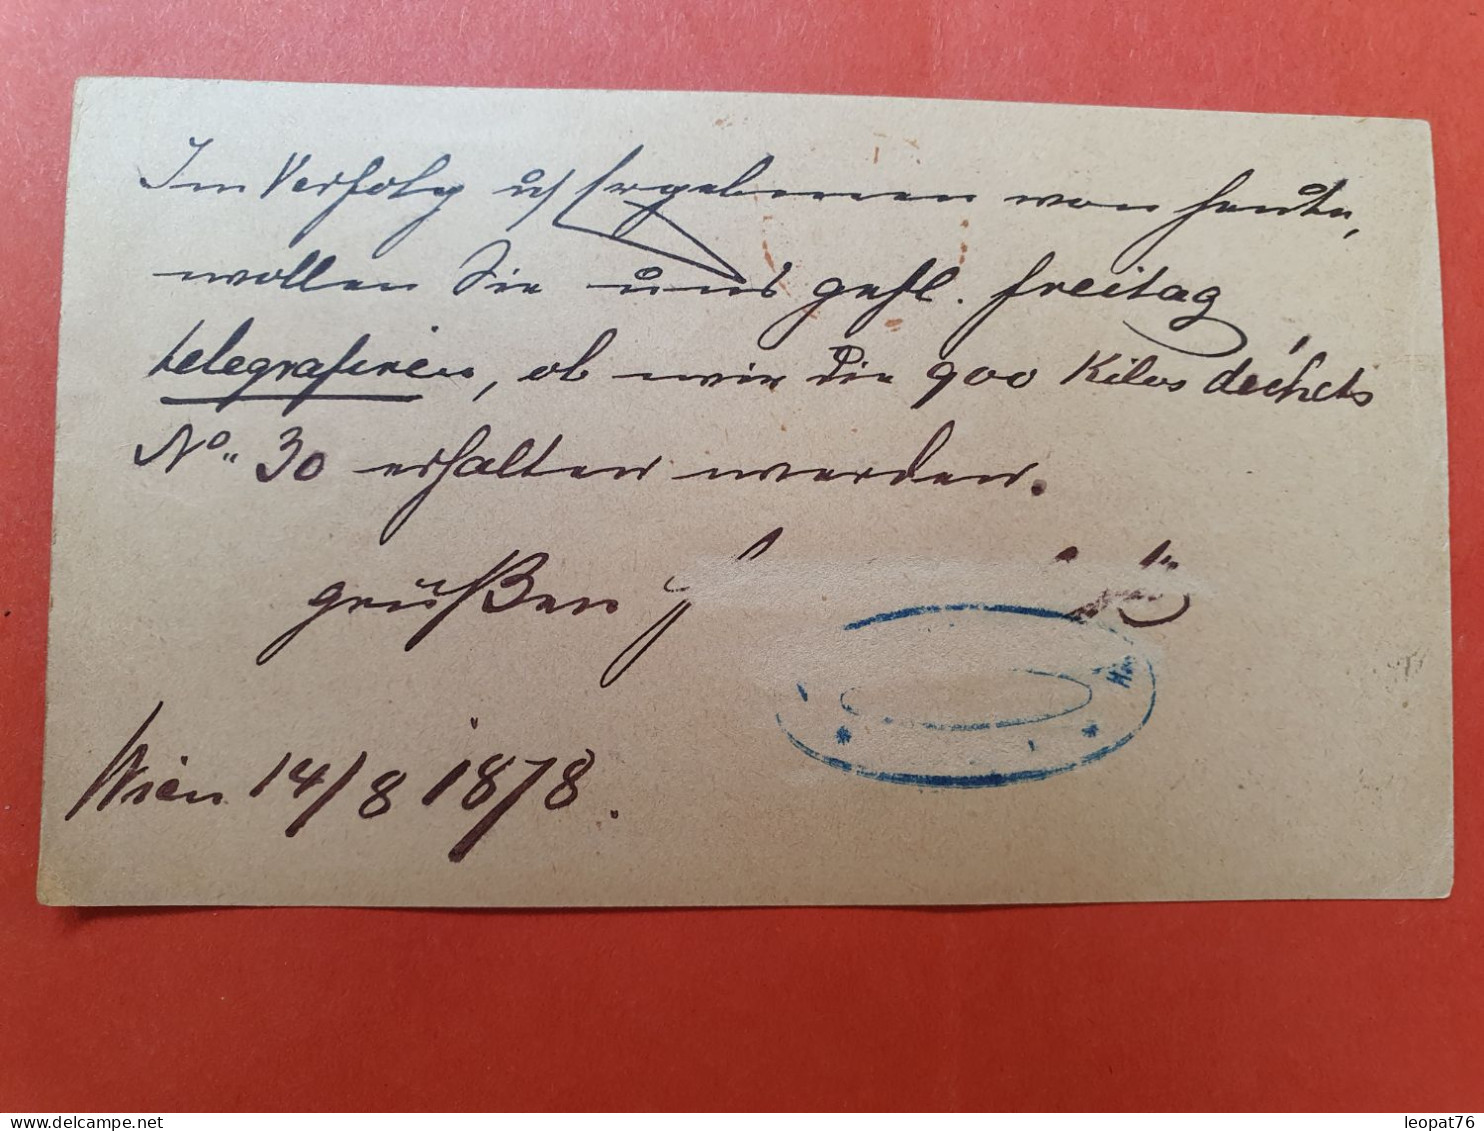 Im Verfolg u/ Ergebenen von heute,
wollen Sie uns gefl. freitag
telegrafiren, ob wir die 900 Kilos déchets
No. 30 erhalten werden.
grüßen
Wien 14/8 1878.
leopat76